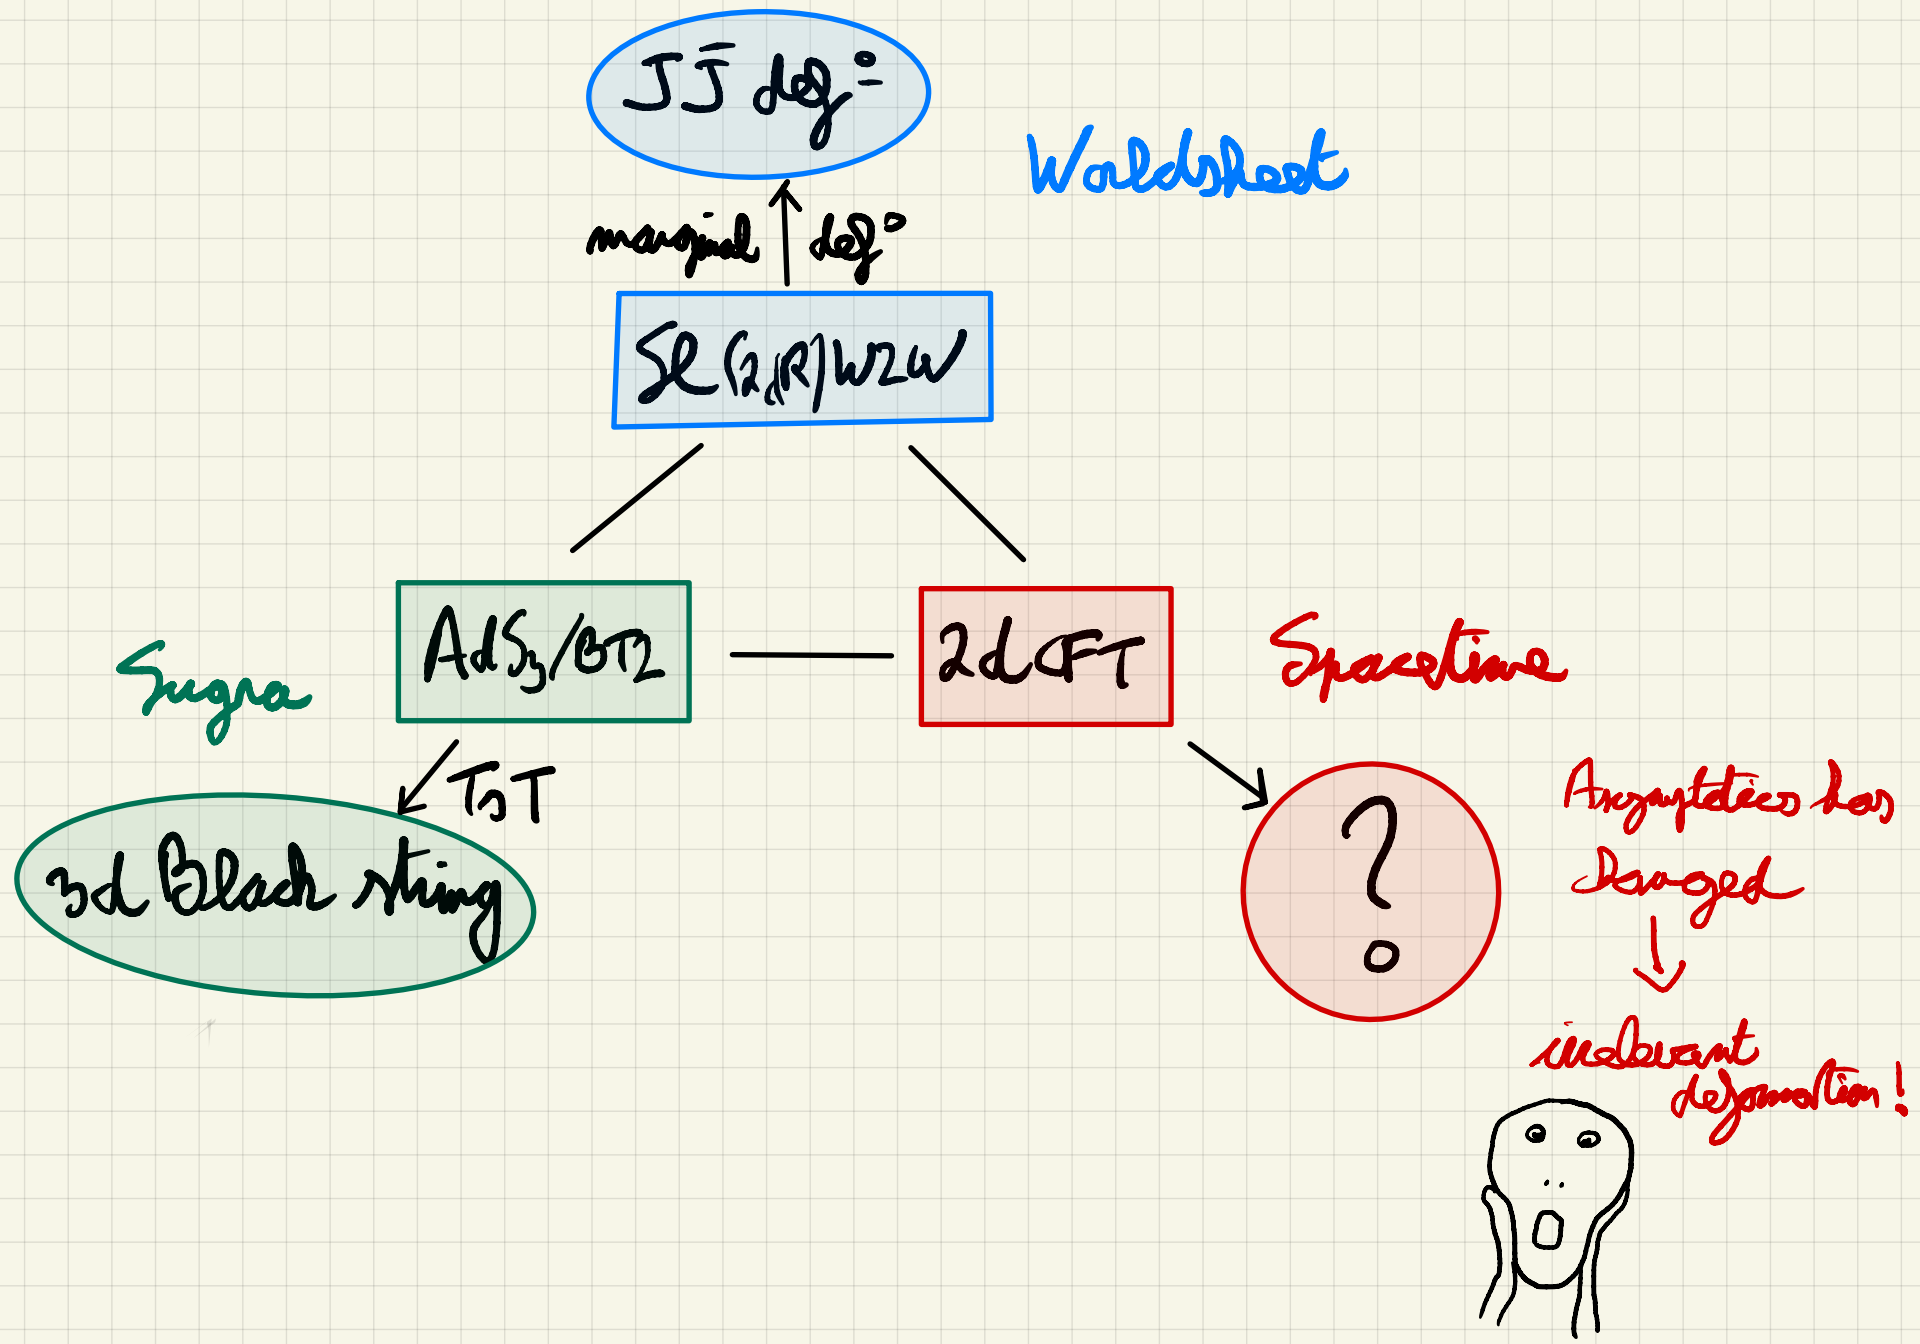 JJ̄ defº
Worldsheet
marginal defº
SL(2,R) WZW
AdS3/BTZ
2d CFT
Sugra
Spacetime
TsT
3d Black string
?
Asymptotics has
Damaged
irrelevant
deformation!